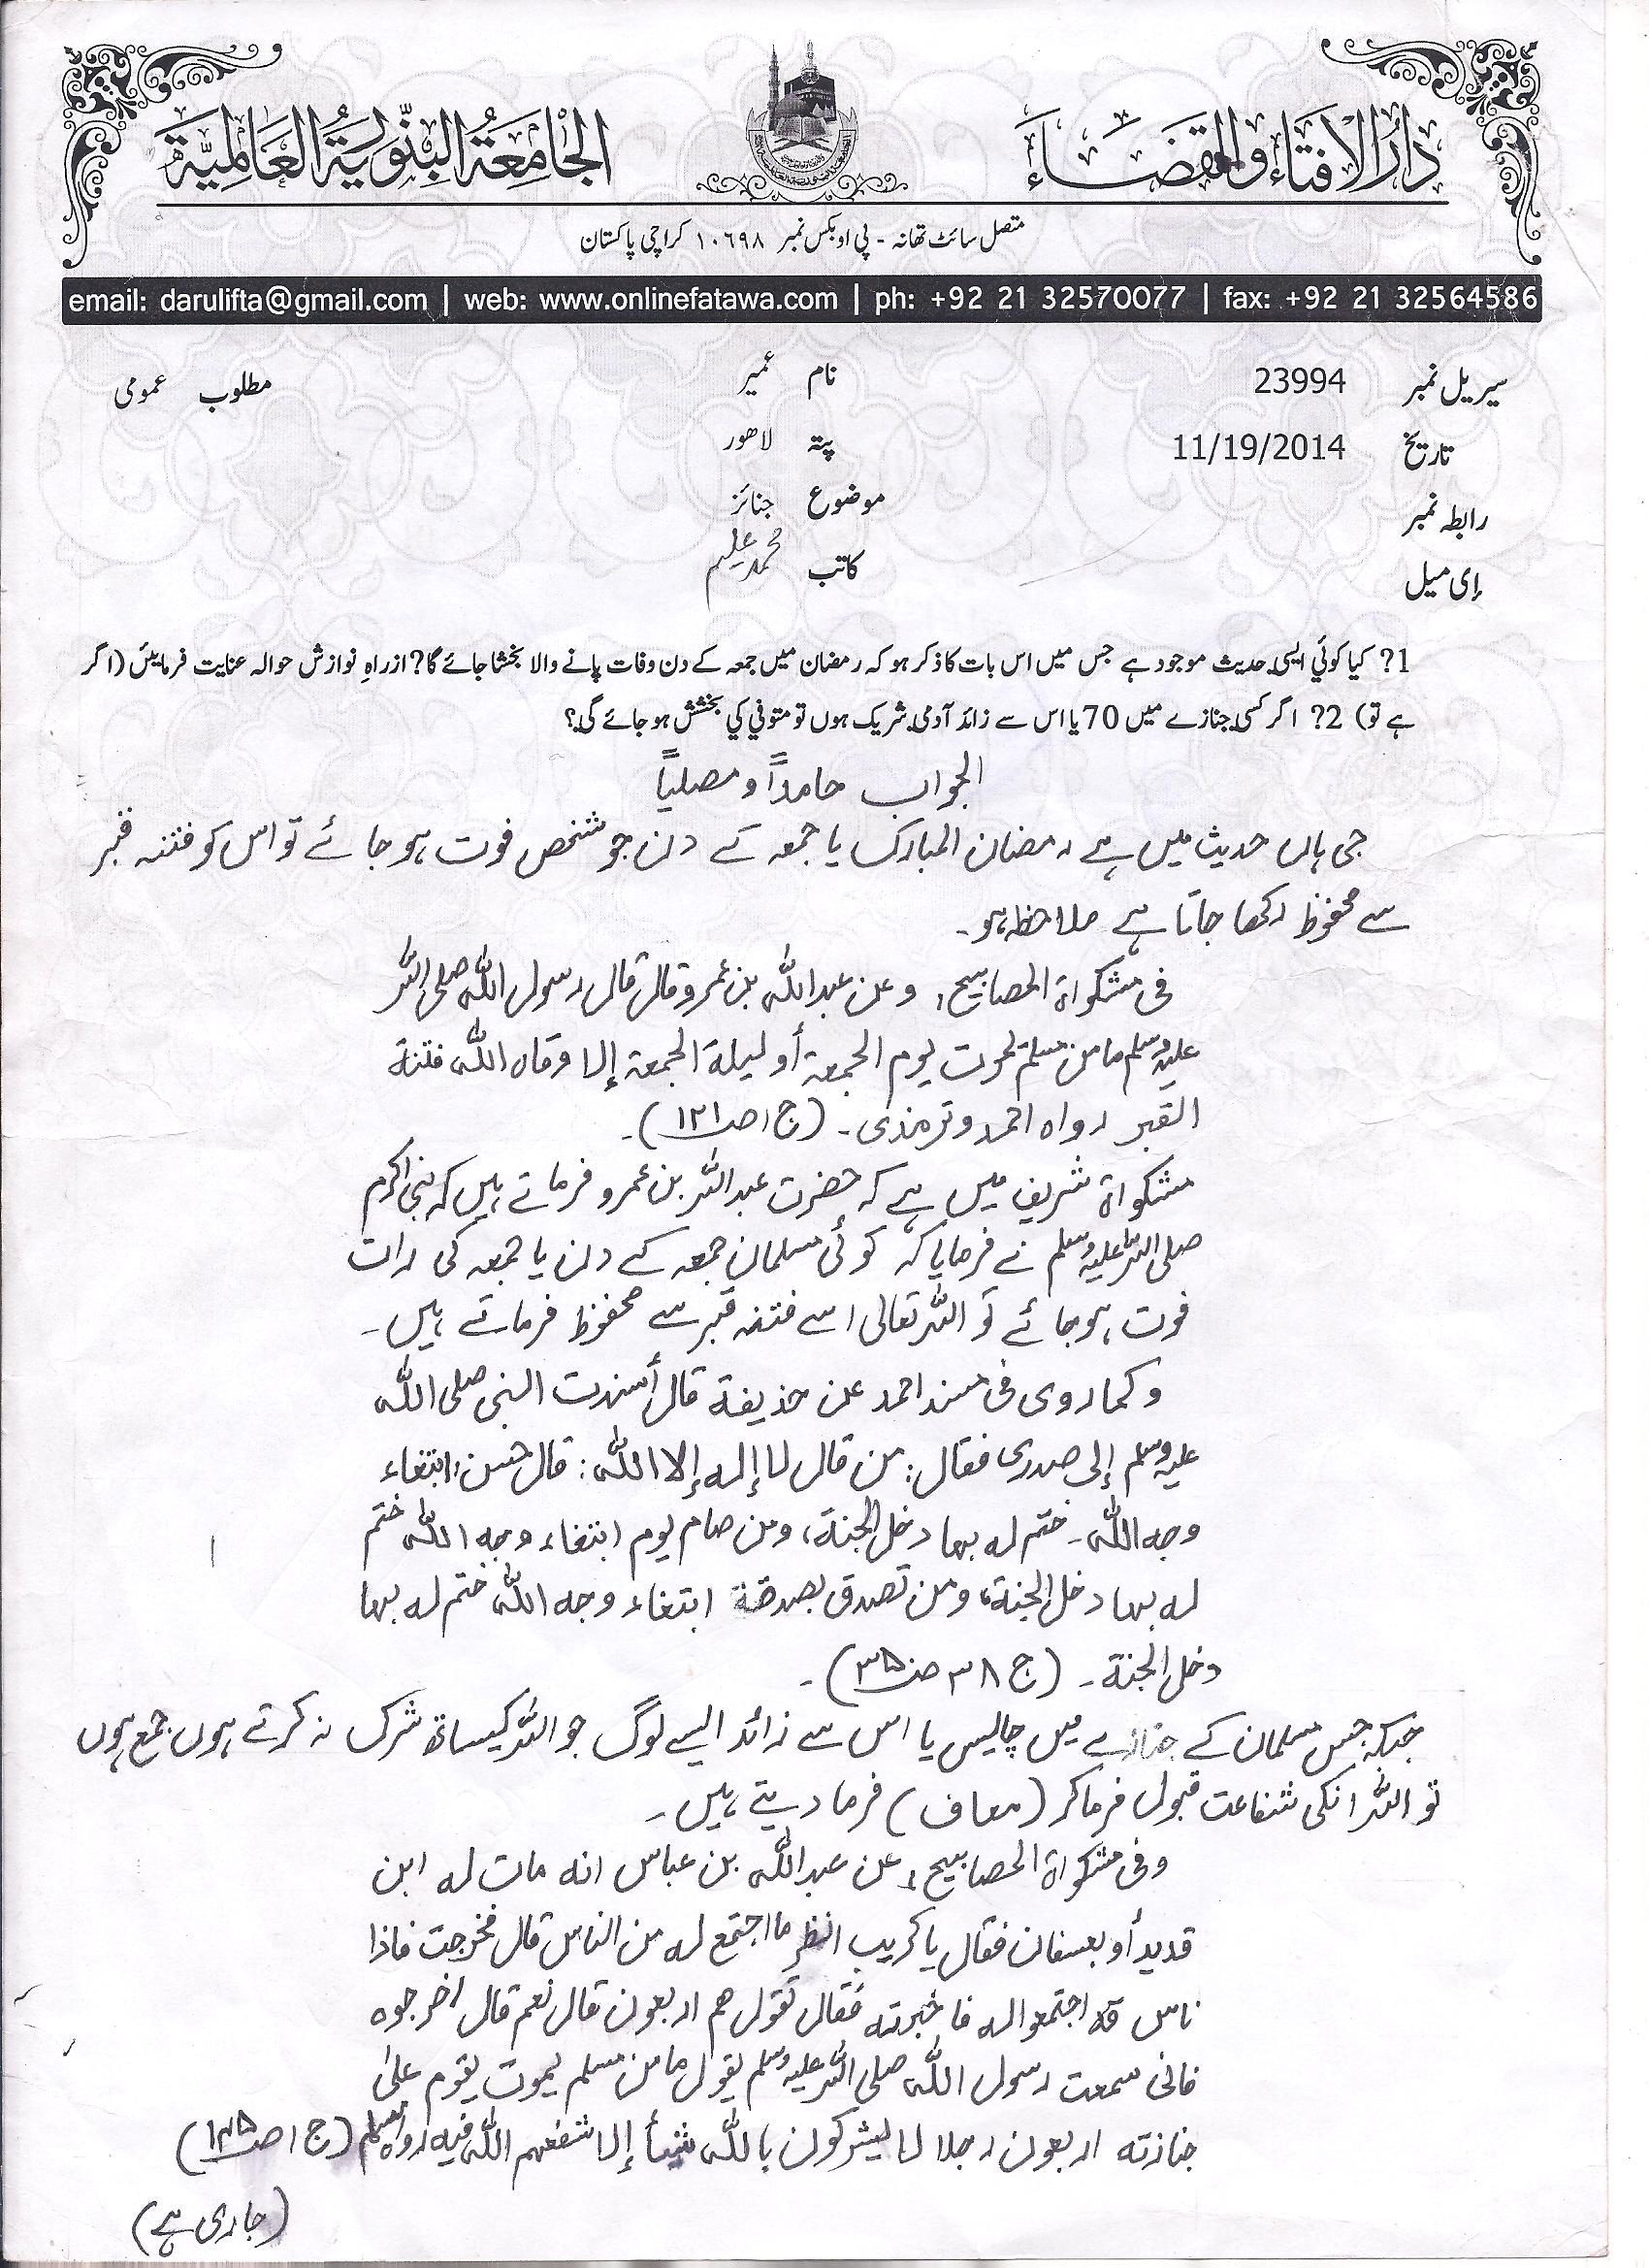 دَارُ الافتَاء والقَضَاء
الجَامِعَةُ البِنّورِيَةُ العَالَمِيَّة
متصل سائٹ تھانہ - پی او بکس نمبر ۱۰۶۹۸ کراچی پاکستان
email: darulifta@gmail.com | web: www.onlinefatawa.com | ph: +92 21 32570077 | fax: +92 21 32564586
سیریل نمبر 23994 نام عمیر مطلوب عمومی
تاریخ 11/19/2014 پتہ لاھور
رابطہ نمبر موضوع جنائز
ای میل کاتب محمد علیم
1? کیا کوئي ایسی حدیث موجود ہے جس میں اس بات کا ذکر ہو کہ رمضان میں جمعہ کے دن وفات پانے والا بخشا جائے گا? ازراہِ نوازش حوالہ عنایت فرمایئں (اگر
ہے تو) 2? اگر کسی جنازے میں 70 یا اس سے زائد آدمی شریک ہوں تو متوفي کي بخشش ہو جائے گی؟
الجواب حامداً و مصلیاً
جی ہاں حدیث میں ہے رمضان المبارک یا جمعہ کے دن جو شخص فوت ہو جائے تو اس کو فتنہ قبر
سے محفوظ رکھا جاتا ہے ملاحظہ ہو۔
فی مشکواۃ المصابیح: وعن عبداللہ بن عمرو قال قال رسول اللہ صلی اللہ
علیہ وسلم ما من مسلم یموت یوم الجمعۃ أو لیلۃ الجمعۃ إلا وقاہ اللہ فتنۃ
القبر رواہ احمد و ترمذی۔ (ج۱ ص۱۲۱)۔
مشکواۃ شریف میں ہے کہ حضرت عبداللہ بن عمرو فرماتے ہیں کہ نبی اکرم
صلی اللہ علیہ وسلم نے فرمایا کہ کوئی مسلمان جمعہ کے دن یا جمعہ کی رات
فوت ہو جائے تو اللہ تعالی اسے فتنہ قبر سے محفوظ فرماتے ہیں۔
وکما روی فی مسند احمد عن حذیفۃ قال أسندت النبی صلی اللہ
علیہ وسلم إلی صدری فقال: من قال لا إلہ إلا اللہ: قال حسن: ابتغاء
وجہ اللہ۔ ختم لہ بہا دخل الجنۃ، ومن صام یوم ابتغاء وجہ اللہ ختم
لہ بہا دخل الجنۃ، ومن تصدق بصدقۃ ابتغاء وجہ اللہ ختم لہ بہا
دخل الجنۃ۔ (ج ۳۸ ص۳۵)۔
جبکہ جس مسلمان کے جنازے میں چالیس یا اس سے زائد ایسے لوگ جو اللہ کیساتھ شرک نہ کرتے ہوں جمع ہوں
تو اللہ انکی شفاعت قبول فرما کر (معاف) فرما دیتے ہیں۔
وفی مشکواۃ المصابیح: عن عبداللہ بن عباس انہ مات لہ ابن
قدید أو بعسفان فقال یا کریب انظر ما اجتمع لہ من الناس قال فخرجت فاذا
ناس قد اجتمعوا لہ فاخبرتہ فقال تقول ہم اربعون قال نعم قال اخرجوہ
فانی سمعت رسول اللہ صلی اللہ علیہ وسلم یقول ما من مسلم یموت یقوم علیٰ
جنازتہ اربعون رجلا لا یشرکون باللہ شیأ إلا شفعہم اللہ فیہ رواہ مسلم (ج ۱ ص۱۴۵)
(جاری ہے)